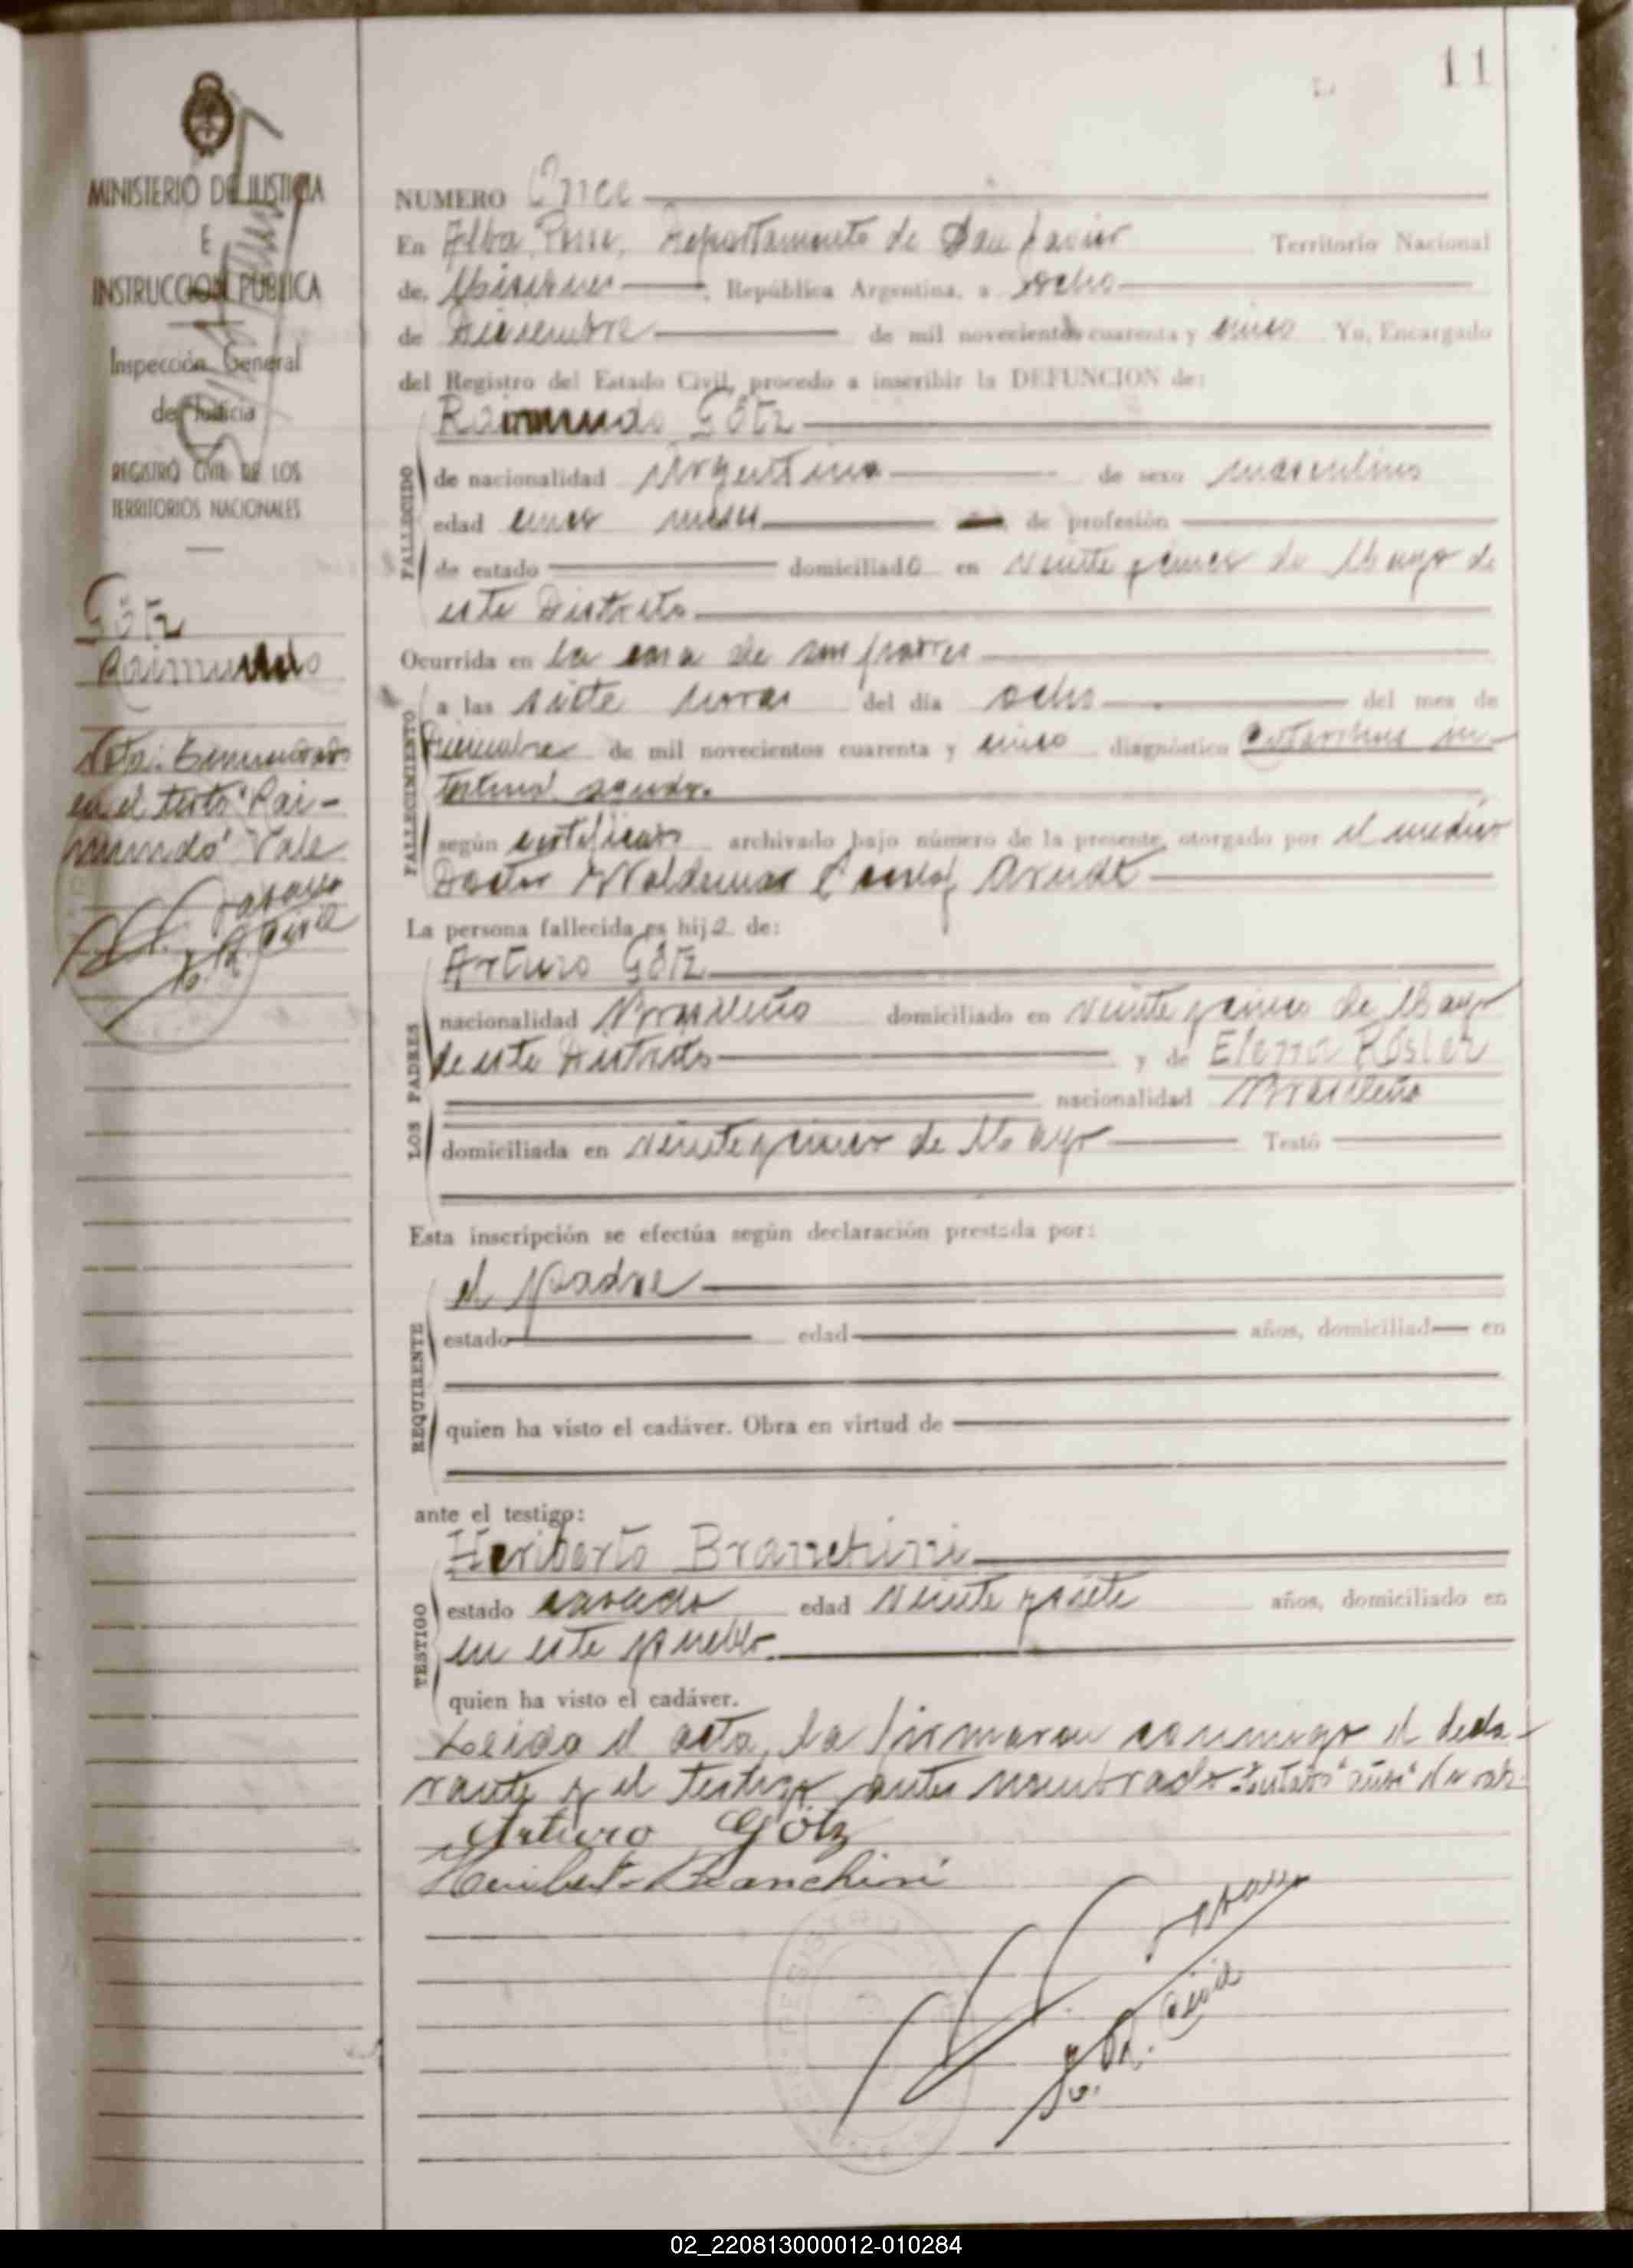 11
MINISTERIO DE JUSTICIA
E
INSTRUCCION PUBLICA
Inspección General
de Justicia
REGISTRO CIVIL DE LOS
TERRITORIOS NACIONALES
Götz
Raimundo
Nota: Enmendado
en el texto "Rai-
mundo" Vale
NUMERO Once
En Alba Posse, Departamento de San Javier Territorio Nacional
de, Misiones, República Argentina, a ocho
de Diciembre de mil novecientos cuarenta y cinco Yo, Encargado
del Registro del Estado Civil, procedo a inscribir la DEFUNCION de:
Raimundo Götz
FALLECIDO
de nacionalidad Argentina de sexo masculino
edad cinco meses de profesión
de estado domiciliado en Veinte y cinco de Mayo de
este Distrito
Ocurrida en la casa de sus padres
FALLECIMIENTO
a las siete horas del día ocho del mes de
Diciembre de mil novecientos cuarenta y cinco diagnóstico in-
testinal agudo.
según certificado archivado bajo número de la presente, otorgado por el medico
Doctor Waldemar Arndt
La persona fallecida es hijo de:
LOS PADRES
Arturo Götz
nacionalidad Brasileño domiciliado en Veinte y cinco de Mayo
de este Distrito y de Elena Rösler
nacionalidad Brasileña
domiciliada en Veinte y cinco de Mayo Testó
Esta inscripción se efectúa según declaración prestada por:
REQUIRENTE
el padre
estado edad años, domiciliad en
quien ha visto el cadáver. Obra en virtud de
ante el testigo:
TESTIGO
Heriberto Branchini
estado casado edad Veinte y siete años, domiciliado en
en este pueblo.
quien ha visto el cadáver.
Leida el acta, la firmaron conmigo el decla-
rante y el testigo antes nombrado. Testado "años" No vale.
Arturo Götz
Heriberto Branchini
02_220813000012-010284